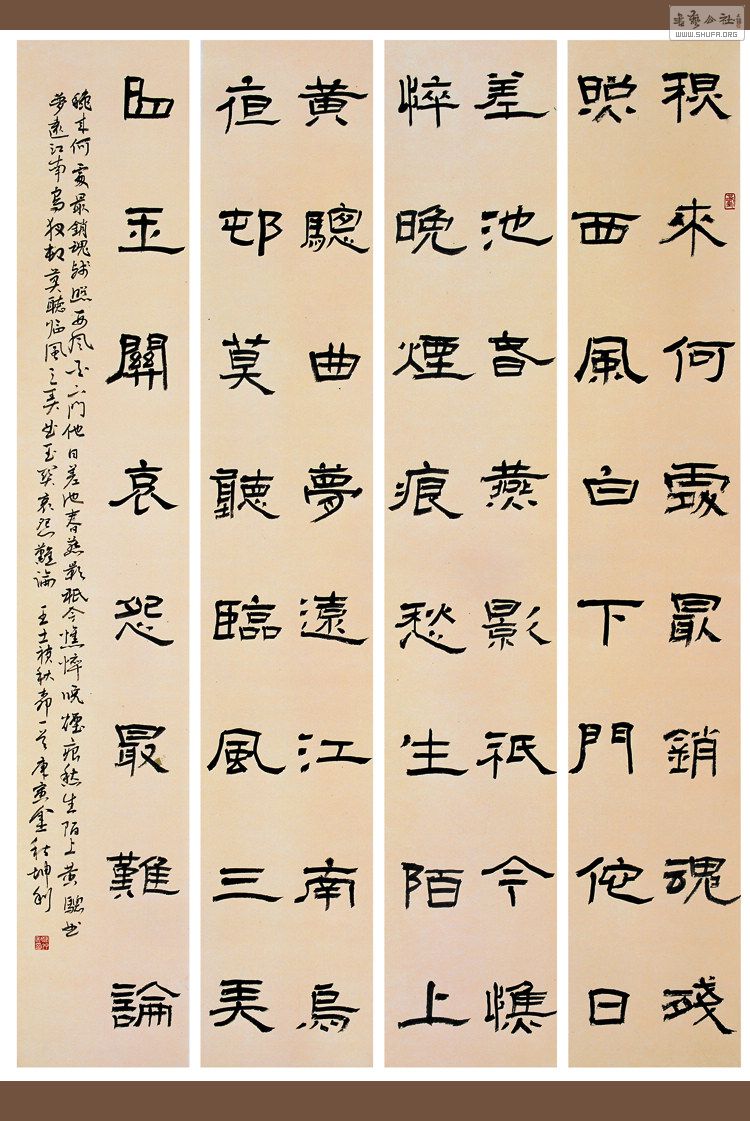 書藝公社
WWW.SHUFA.ORG
秋來何處最銷魂殘
照西風白下門佗日
差池春燕影祇今憔
悴晚煙痕愁生陌上
黃驄曲夢遠江南烏
夜邨莫聽臨風三弄
曲玉關哀怨最難論
秋來何處最銷魂殘照西風白下門他日差池春燕影祇今憔悴晚煙痕愁生陌上黃驄曲
夢遠江南烏夜邨莫聽臨風三弄曲玉關哀怨難論 王士禎秋柳一首 庚寅金秋坤利